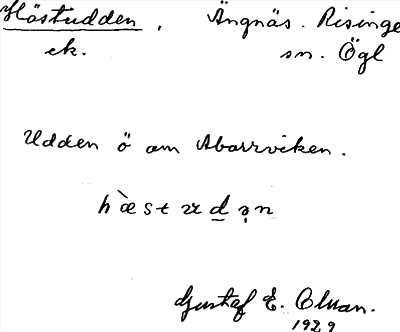 Höstudden. Ängnäs. Risinge
ek. sn. Ögl
Udden ö om Aborrviken.
Gustaf E. Olsson.
1929